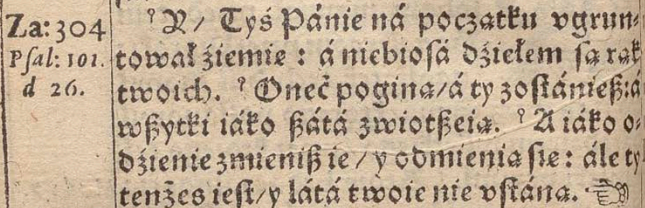 Za: 304
Pſal: 101.
d 26.
⁹ A/ Tyś Pánie ná początku vgrun-
tował źiemie : á niebioſá dźiełem ſą rąk
twoich. ⁹ Oneć poginą/á ty zoſtánieß:á
wßytki iáko ßátá zwiotßeią. ⁹ A iáko o-
dźienie zmieniß ie/ y odmienią ſie : ále ty
tenżes ieſt/y látá twoie nie vſtáną. ☜